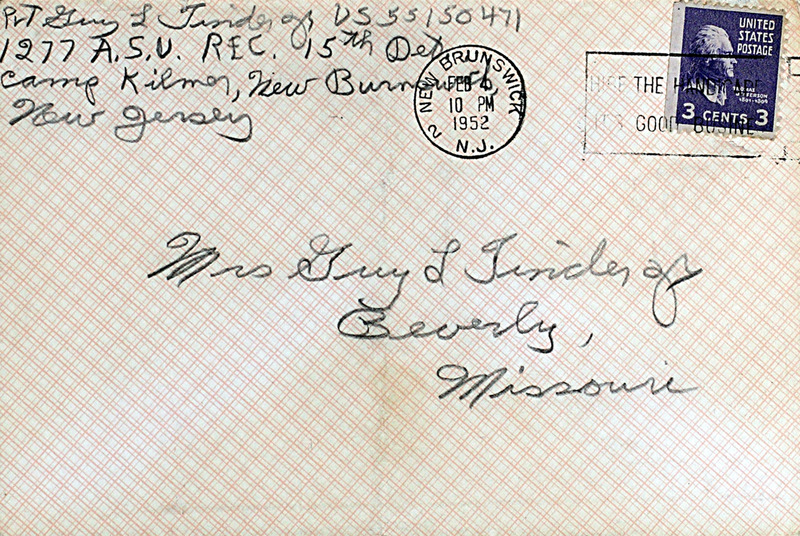 Pvt Guy L Tinder Jr US 55150471
1277 A.S.U. REC. 15th Det
Camp Kilmer, New Burnswick,
New Jersey
NEW BRUNSWICK
2
FEB 4
10 PM
1952
N.J.
HIRE THE HANDICAPPED
IT'S GOOD BUSINESS
UNITED
STATES
POSTAGE
THOMAS
JEFFERSON
1801-1809
3 CENTS 3
Mrs Guy L Tinder Jr
Beverly,
Missouri